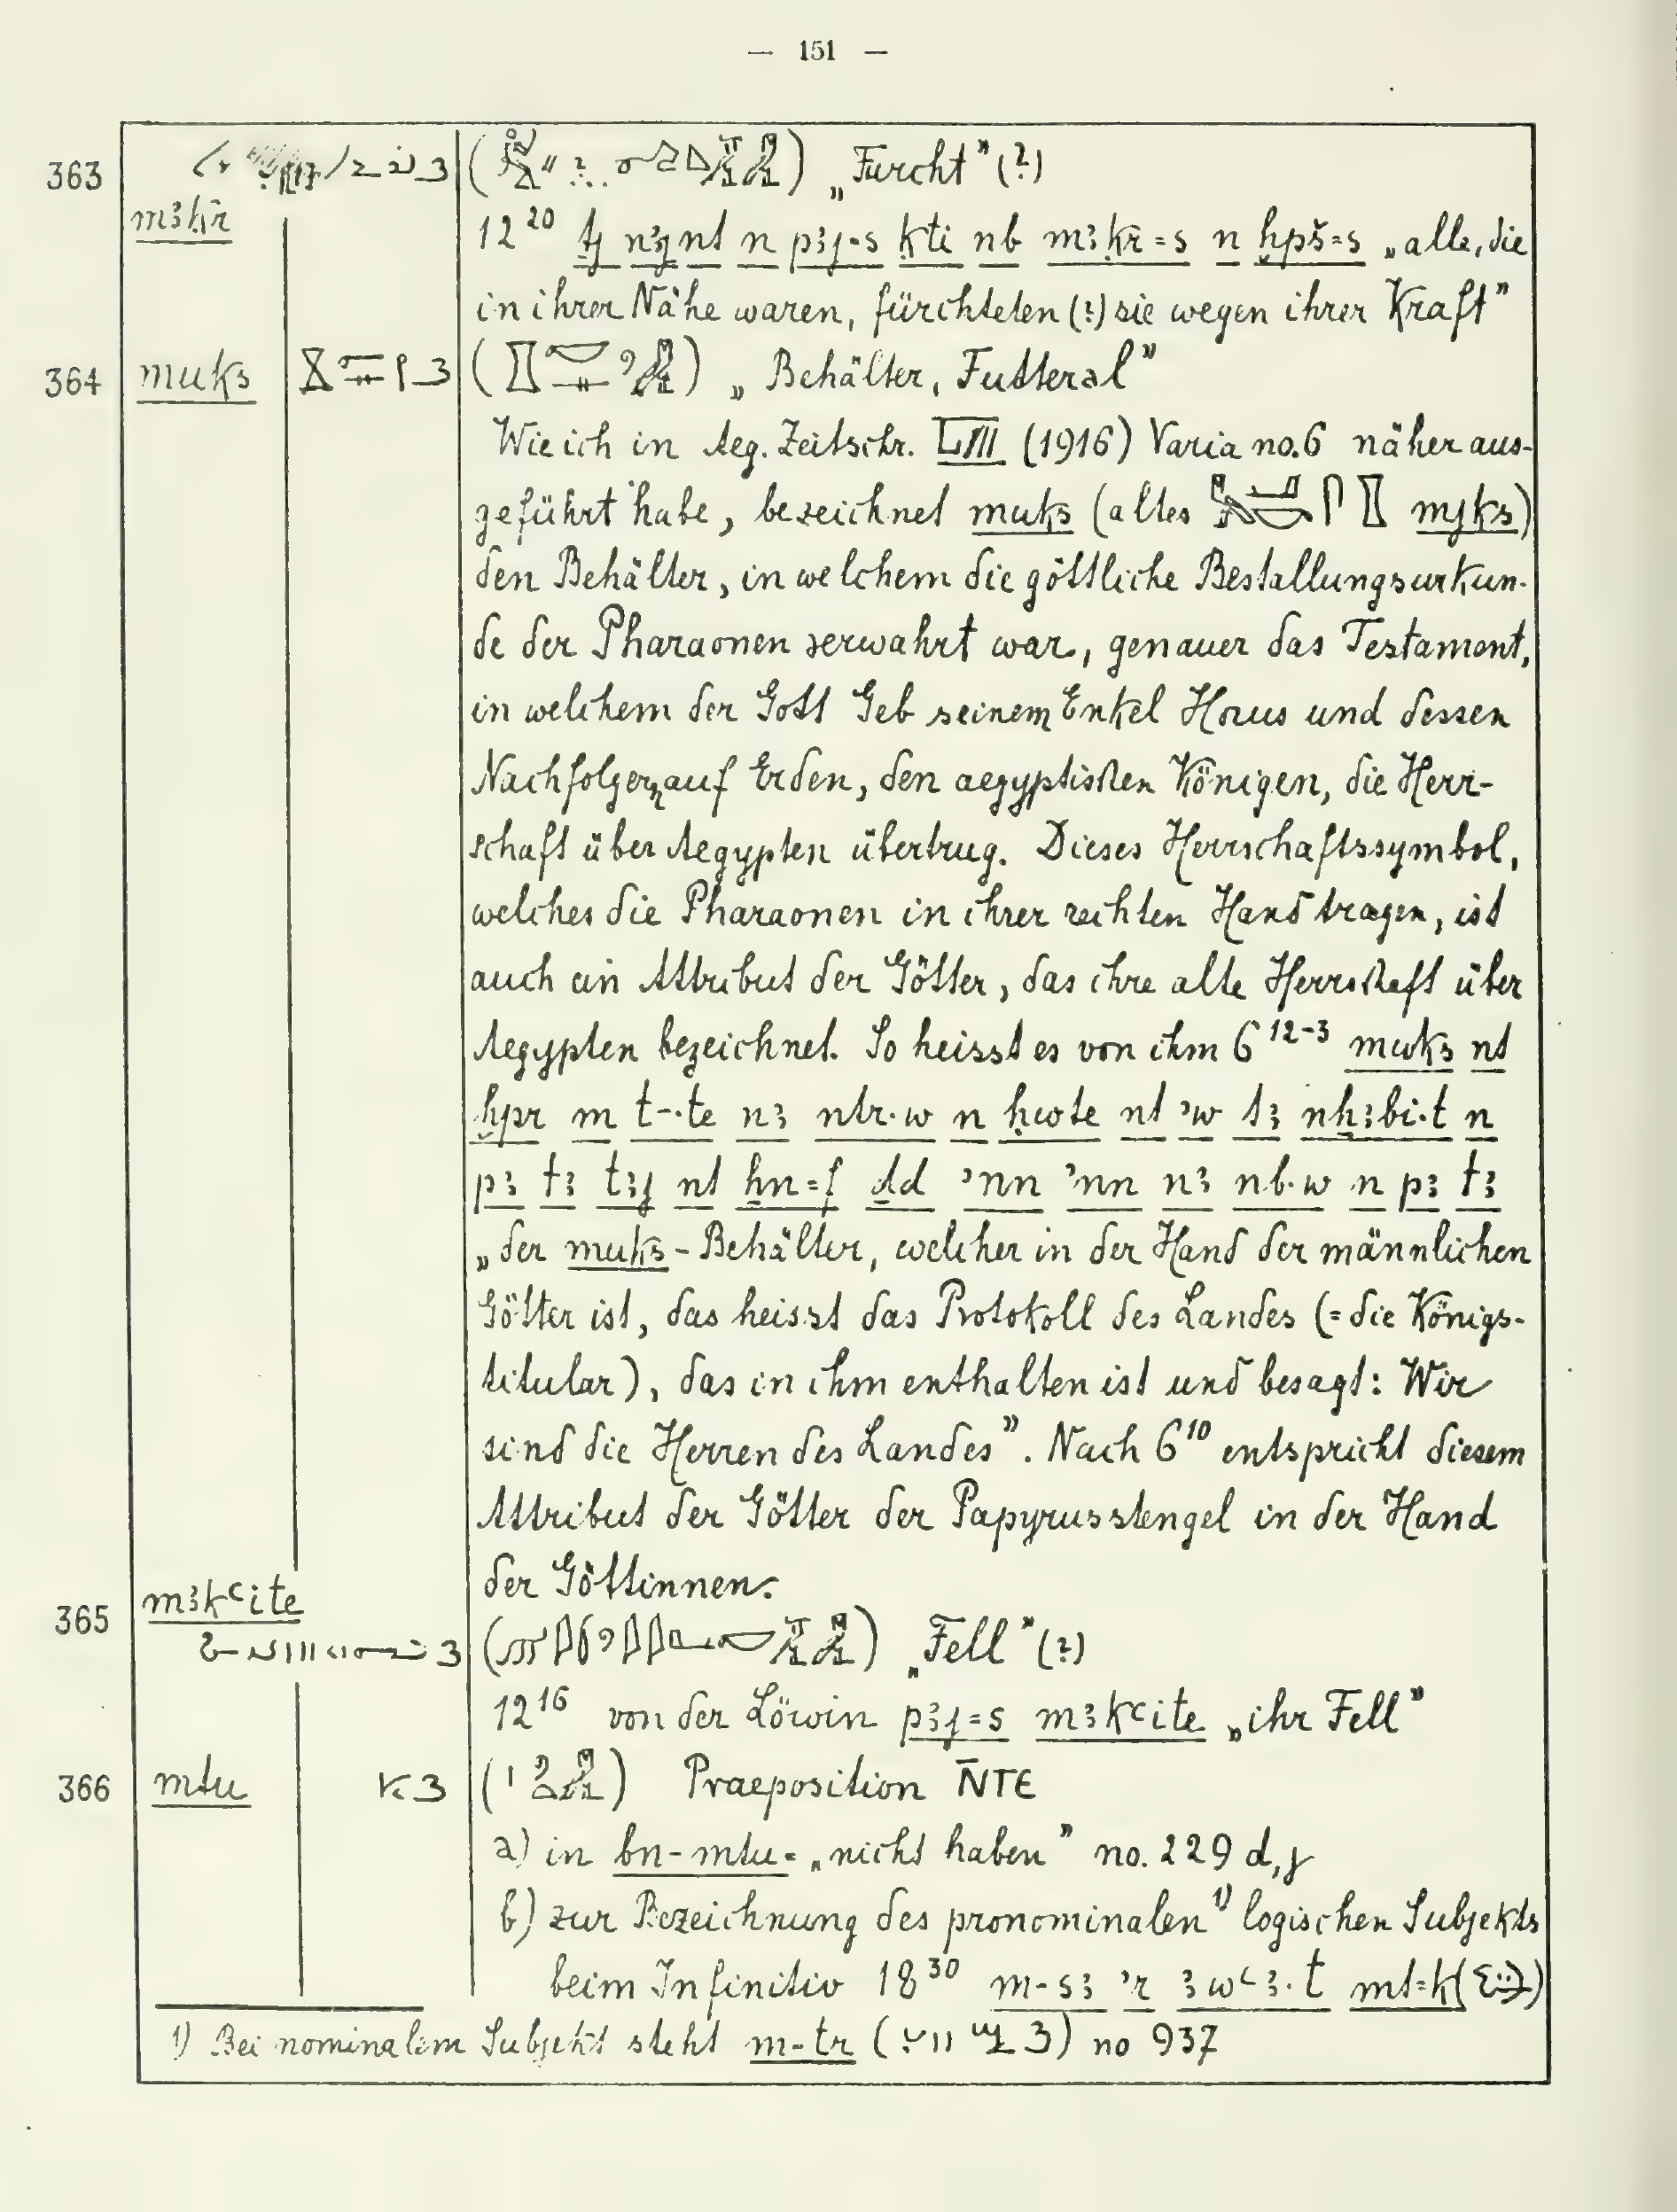 — 151 —
363 mꜣḳr „Furcht” (?)
12²⁰ nt n pꜣj=s ḳti nb mꜣḳr=s n ḫpš=s „alle, die
in ihrer Nähe waren, fürchteten (?) sie wegen ihrer Kraft”
364 muks „Behälter, Futteral”
Wie ich in Aeg. Zeitschr. LIII (1916) Varia no. 6 näher aus-
geführt habe, bezeichnet muks (altes mjks)
den Behälter, in welchem die göttliche Bestallungsurkun-
de der Pharaonen verwahrt war, genauer das Testament,
in welchem der Gott Geb seinem Enkel Horus und dessen
Nachfolgern auf Erden, den aegyptischen Königen, die Herr-
schaft über Aegypten übertrug. Dieses Herrschaftssymbol,
welches die Pharaonen in ihrer rechten Hand tragen, ist
auch ein Attribut der Götter, das ihre alte Herrschaft über
Aegypten bezeichnet. So heisst es von ihm 6¹²⁻³ muks nt
ḫpr m t-·te nꜣ ntr·w n ḥwṭe nt ʾw tꜣ nḫꜣbi·t n
pꜣ tꜣ tꜣj nt ẖn=f ḏd ʾnn ʾnn nꜣ nb·w n pꜣ tꜣ
„der muks-Behälter, welcher in der Hand der männlichen
Götter ist, das heisst das Protokoll des Landes (= die Königs-
titular), das in ihm enthalten ist und besagt: Wir
sind die Herren des Landes”. Nach 6¹⁰ entspricht diesem
Attribut der Götter der Papyrusstengel in der Hand
der Göttinnen.
365 mꜣkꜥite „Fell” (?)
12¹⁶ von der Löwin pꜣj=s mꜣkꜥite „ihr Fell”
366 mtu Praeposition N̄TE
a) in bn-mtu= „nicht haben” no. 229 d, j
b) zur Bezeichnung des pronominalen ¹⁾ logischen Subjekts
beim Infinitiv 18³⁰ m-sꜣ ʾr ꜣwꜥꜣ·t mt=k
1) Bei nominalem Subjekt steht m-tr no 937